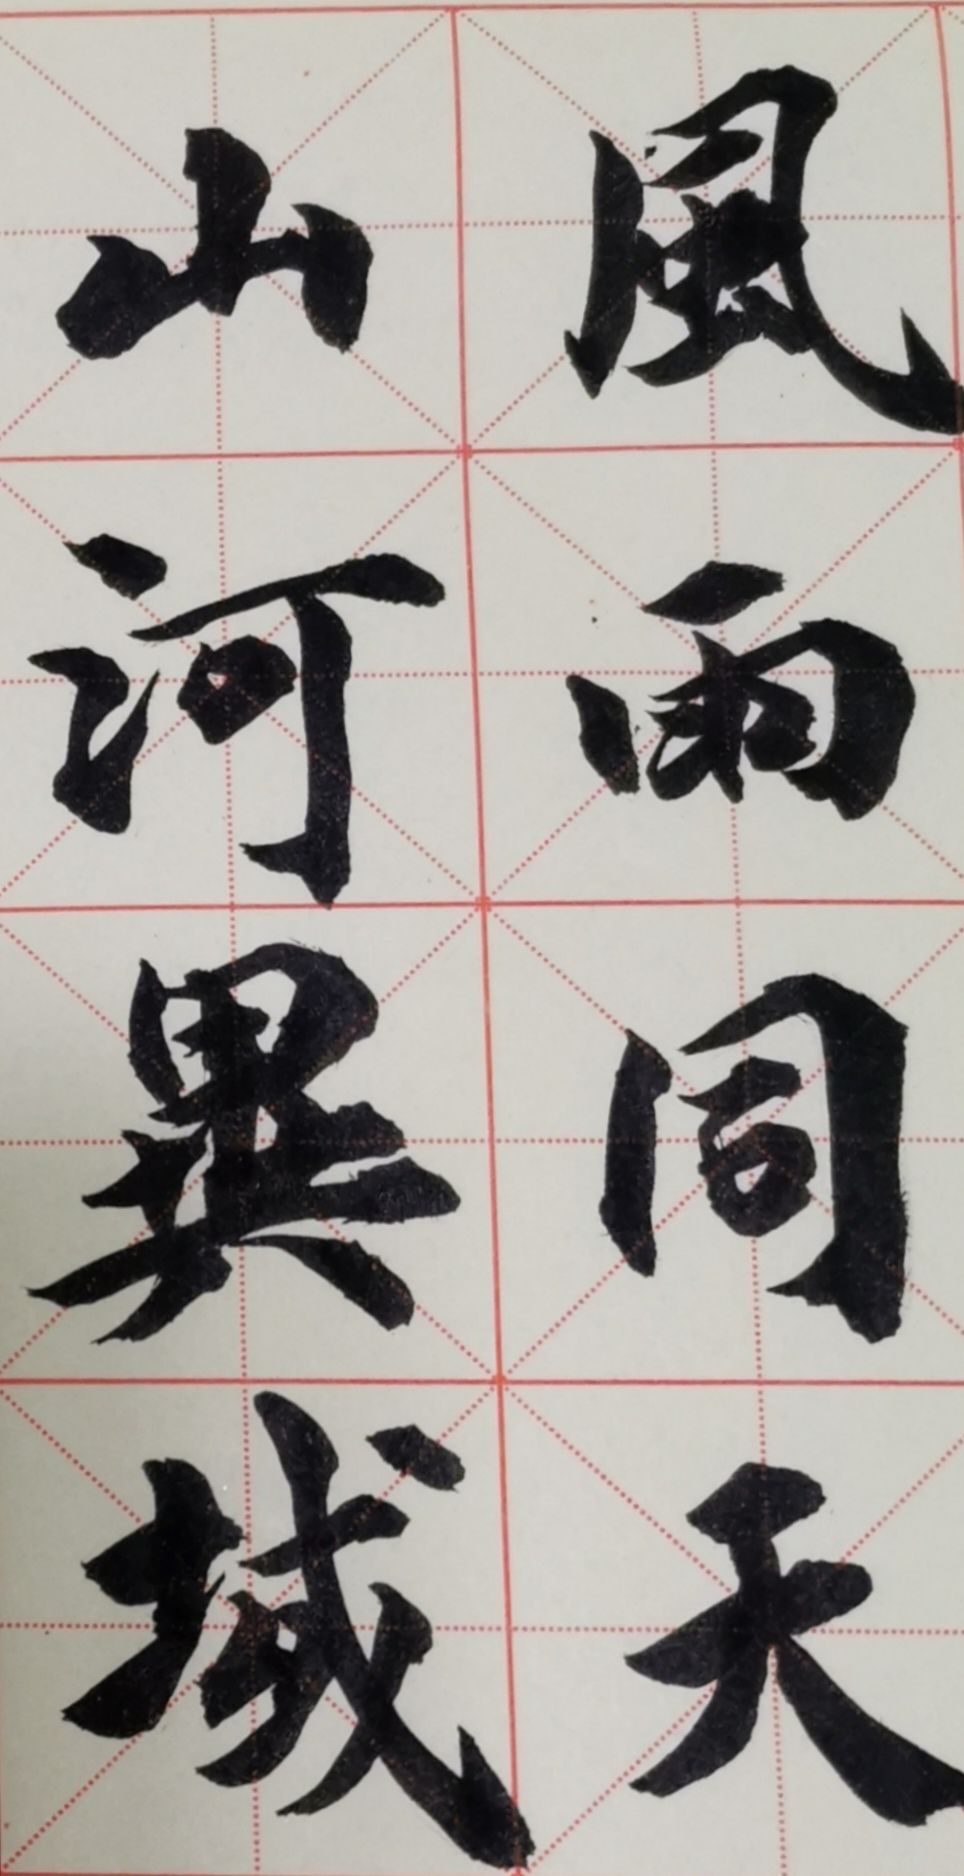 風雨同天
山河異域